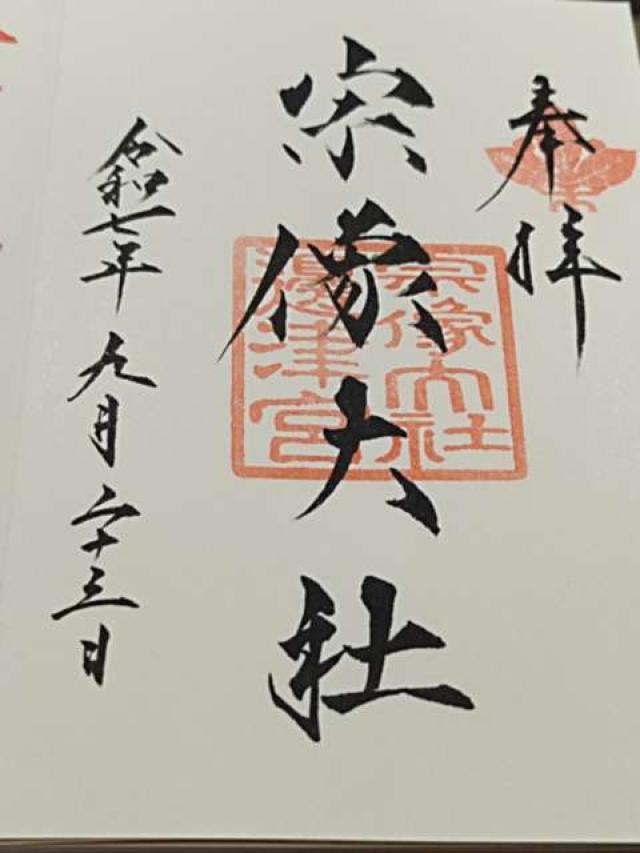 奉拝
宗像大社
宗像大社
邊津宮
令和七年九月二十三日